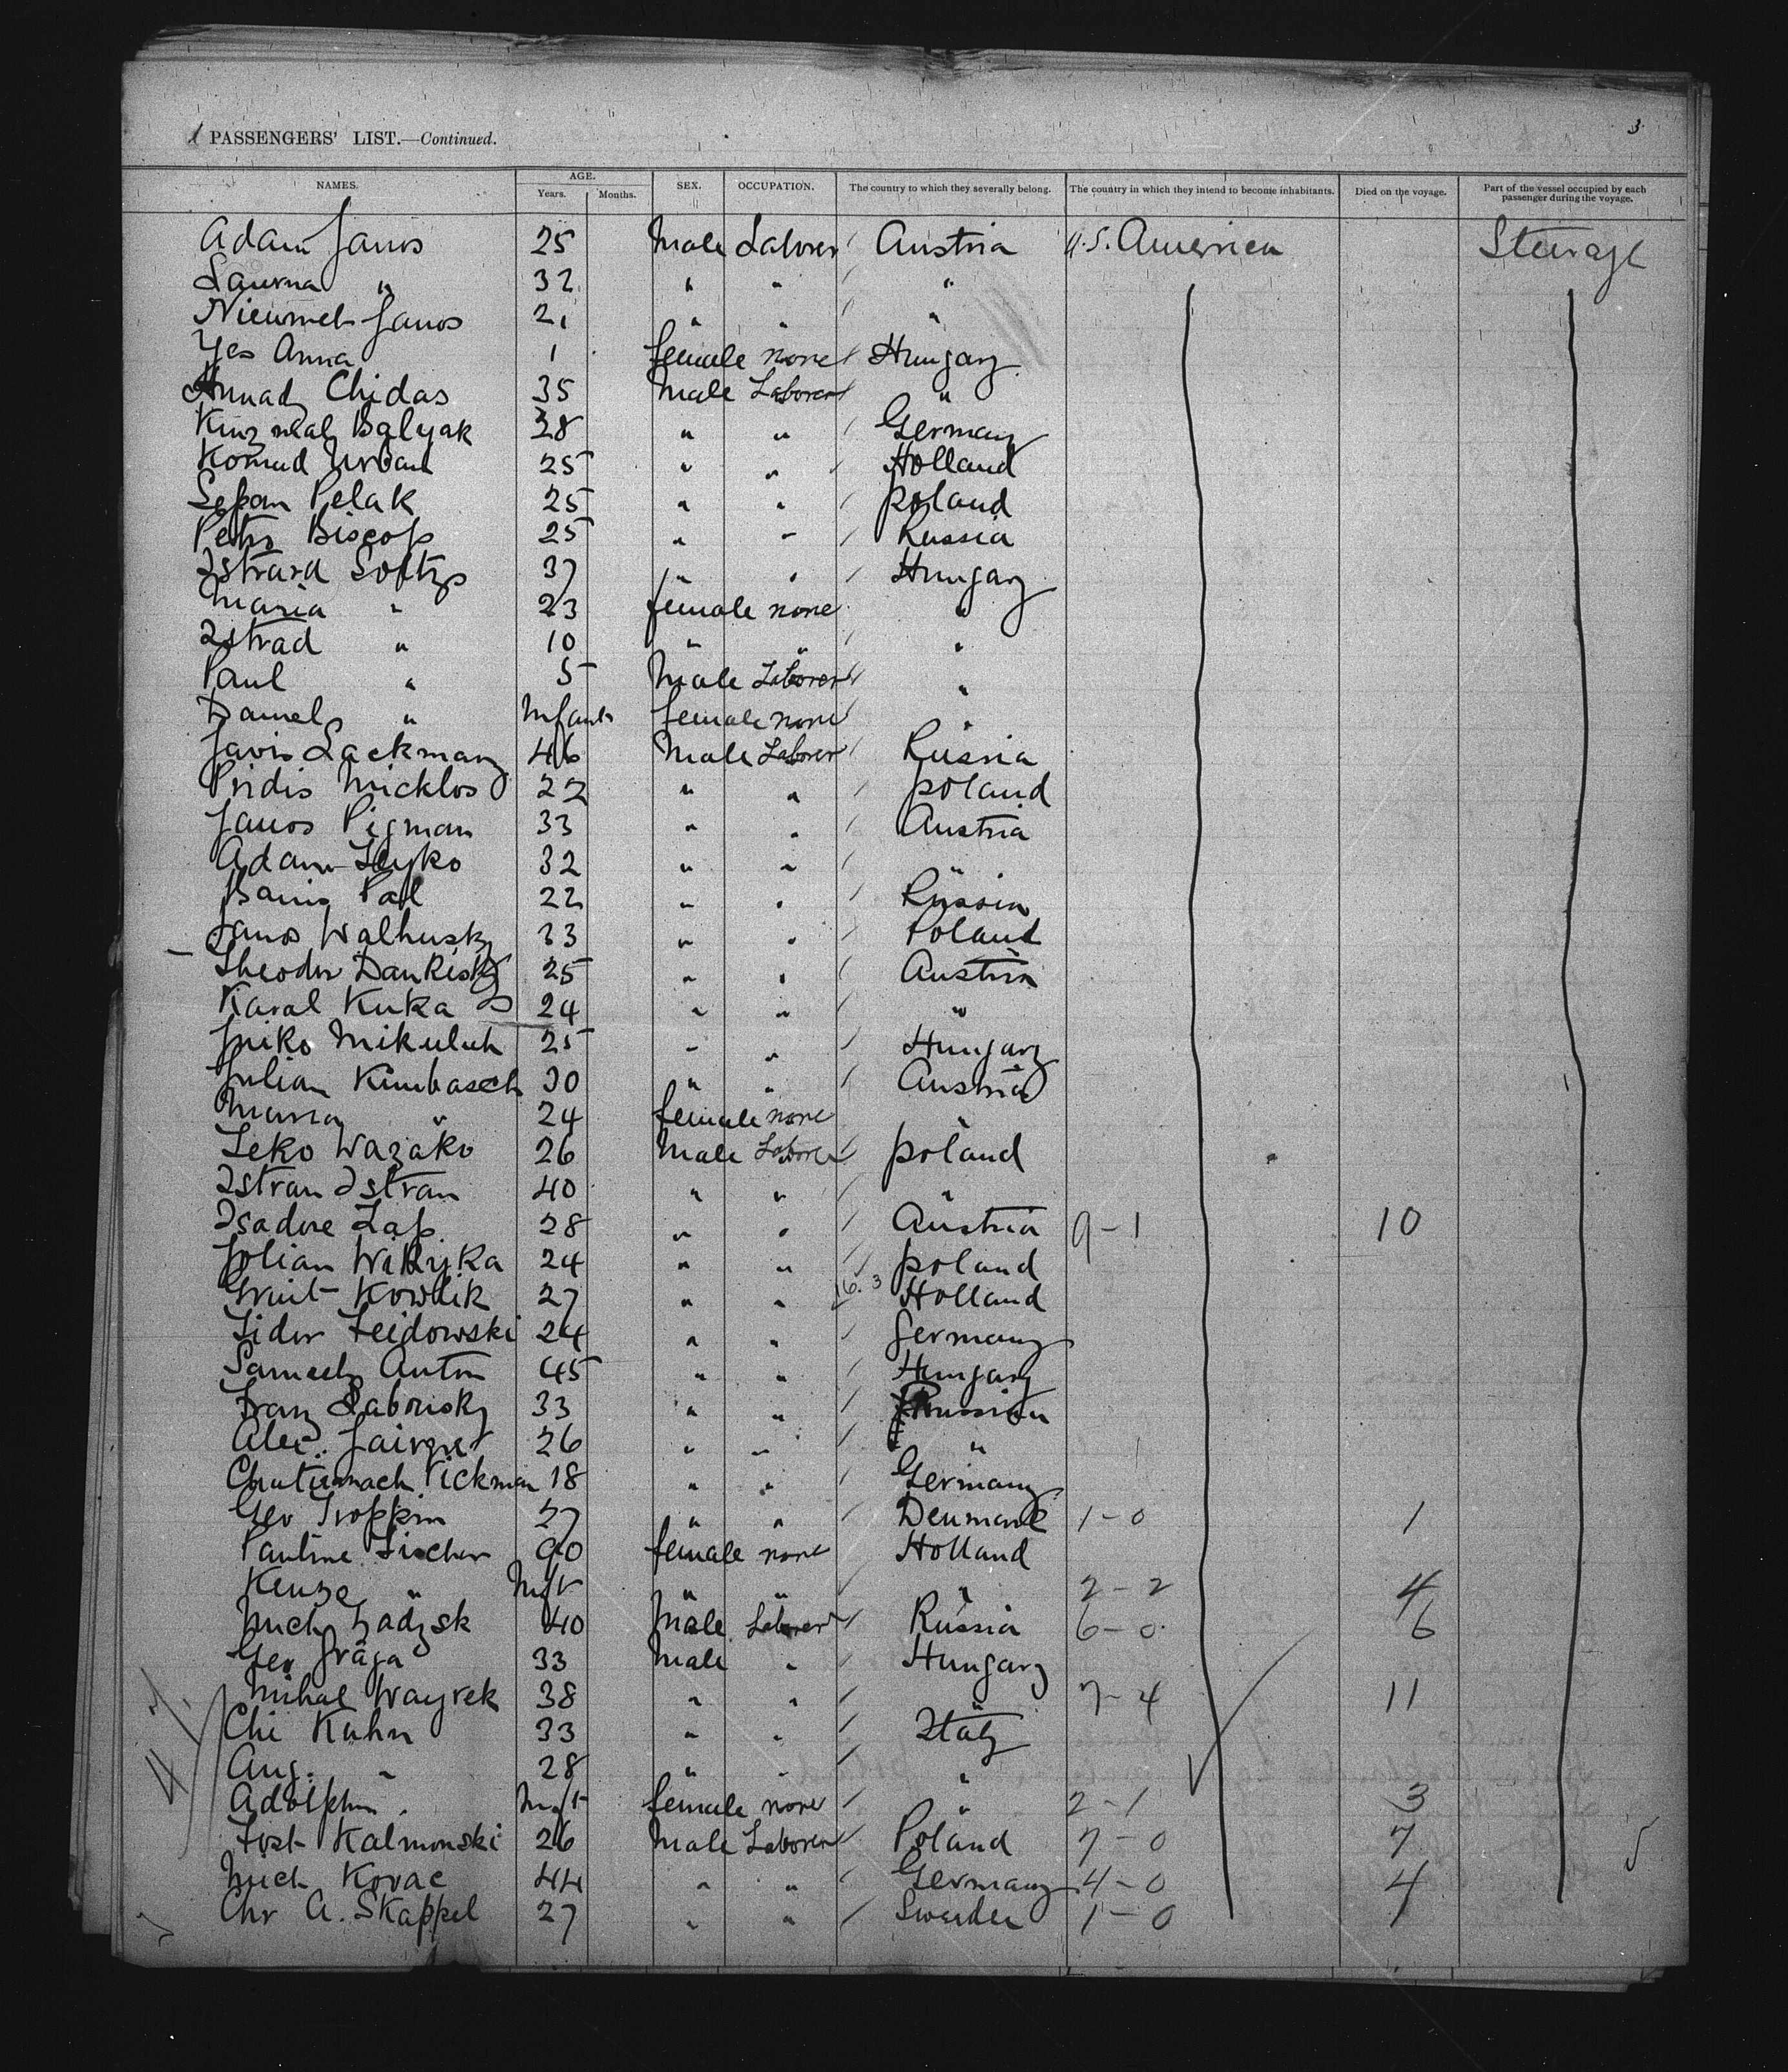 PASSENGERS' LIST.—Continued. 3
NAMES. AGE. Years. Months. SEX. OCCUPATION. The country to which they severally belong. The country in which they intend to become inhabitants. Died on the voyage. Part of the vessel occupied by each passenger during the voyage.
Adam Janos 25 Male Laborer Austria U.S. America Steerage
" 32 " " "
Janos 21 " " "
Yes Anna 1 female none Hungary
Chidas 35 Male Laborer "
Balyak 28 " " Germany
Konrad Urban 25 " " Holland
Pelak 25 " " poland
Petro Biscop 25 " " Russia
37 " " Hungary
Maria " 23 female none "
Istrad " 10 " " "
Paul " 5 Male Laborer "
Daniel " Infant female none "
Lackman 46 Male Laborer Russia
Pridis Micklos 22 " " poland
Janos Pigman 33 " " Austria
Adam 32 " " "
Pal 22 " " Russia
Janos Walhusky 33 " " Poland
Theodor Dankisky 25 " " Austria
Karal Kuka 24 " " "
Mikuluh 25 " " Hungary
Julian Kimbasch 30 " " Austria
Maria " 24 female none "
Leko Wazako 26 Male Laborer poland
Istran Istran 40 " " "
Isadore Zap 28 " " Austria 9-1 10
Jolian 24 " " poland
Kowlik 27 " " 16.3 Holland
24 " " Germany
Anton 45 " " Hungary
Franz Sabonsky 33 " " Prussian
Alec. 26 " " "
Pickman 18 " " Germany
Geo Troppin 27 " " Denmark 1-0 1
Pauline Fischer 90 female none Holland
" Inft " " " 2-2 4
Mich 40 Male Laborer Russia 6-0 6
Geo Graga 33 Male " Hungary
Mihal Wayrek 38 " " " 7-4 11
Chi Kuhn 33 " " Italy
Aug. " 28 " " "
Adolphin " Inft female none " 2-1 3
Kalmonski 26 Male Laborer Poland 7-0 7
Mich Kovac 44 " " Germany 4-0 4
Chr A. Skappel 27 " " Sweden 1-0 1